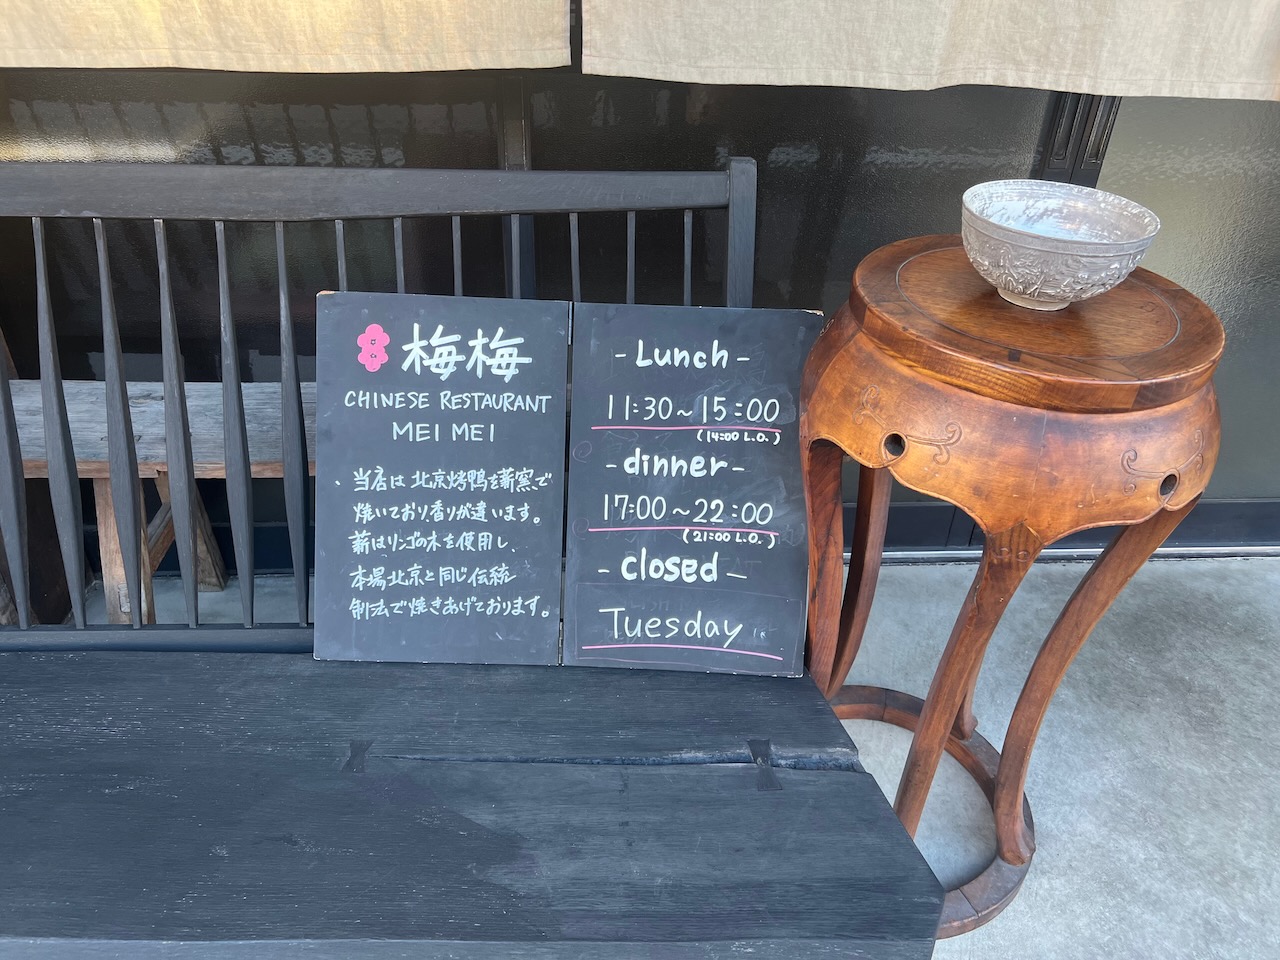 梅梅
CHINESE RESTAURANT
MEI MEI
当店は北京烤鴨を薪窯で
焼いており、香りが違います。
薪はリンゴの木を使用し、
本場北京と同じ伝統
制法で焼きあげております。
-Lunch-
11:30~15:00
(14:00 L.O.)
-dinner-
17:00~22:00
(21:00 L.O.)
-closed-
Tuesday